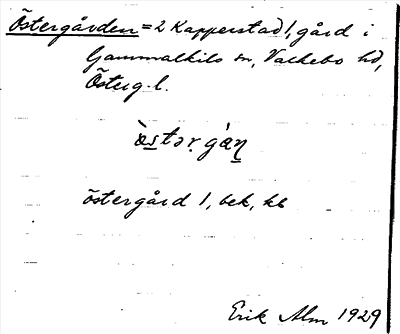 Östergården = 2 Kapperstad 1, gård i
Gammalkils sn, Valkebo hd,
Österg. l.
östərgán
östergård 1, bek, kb
Erik Alm 1929